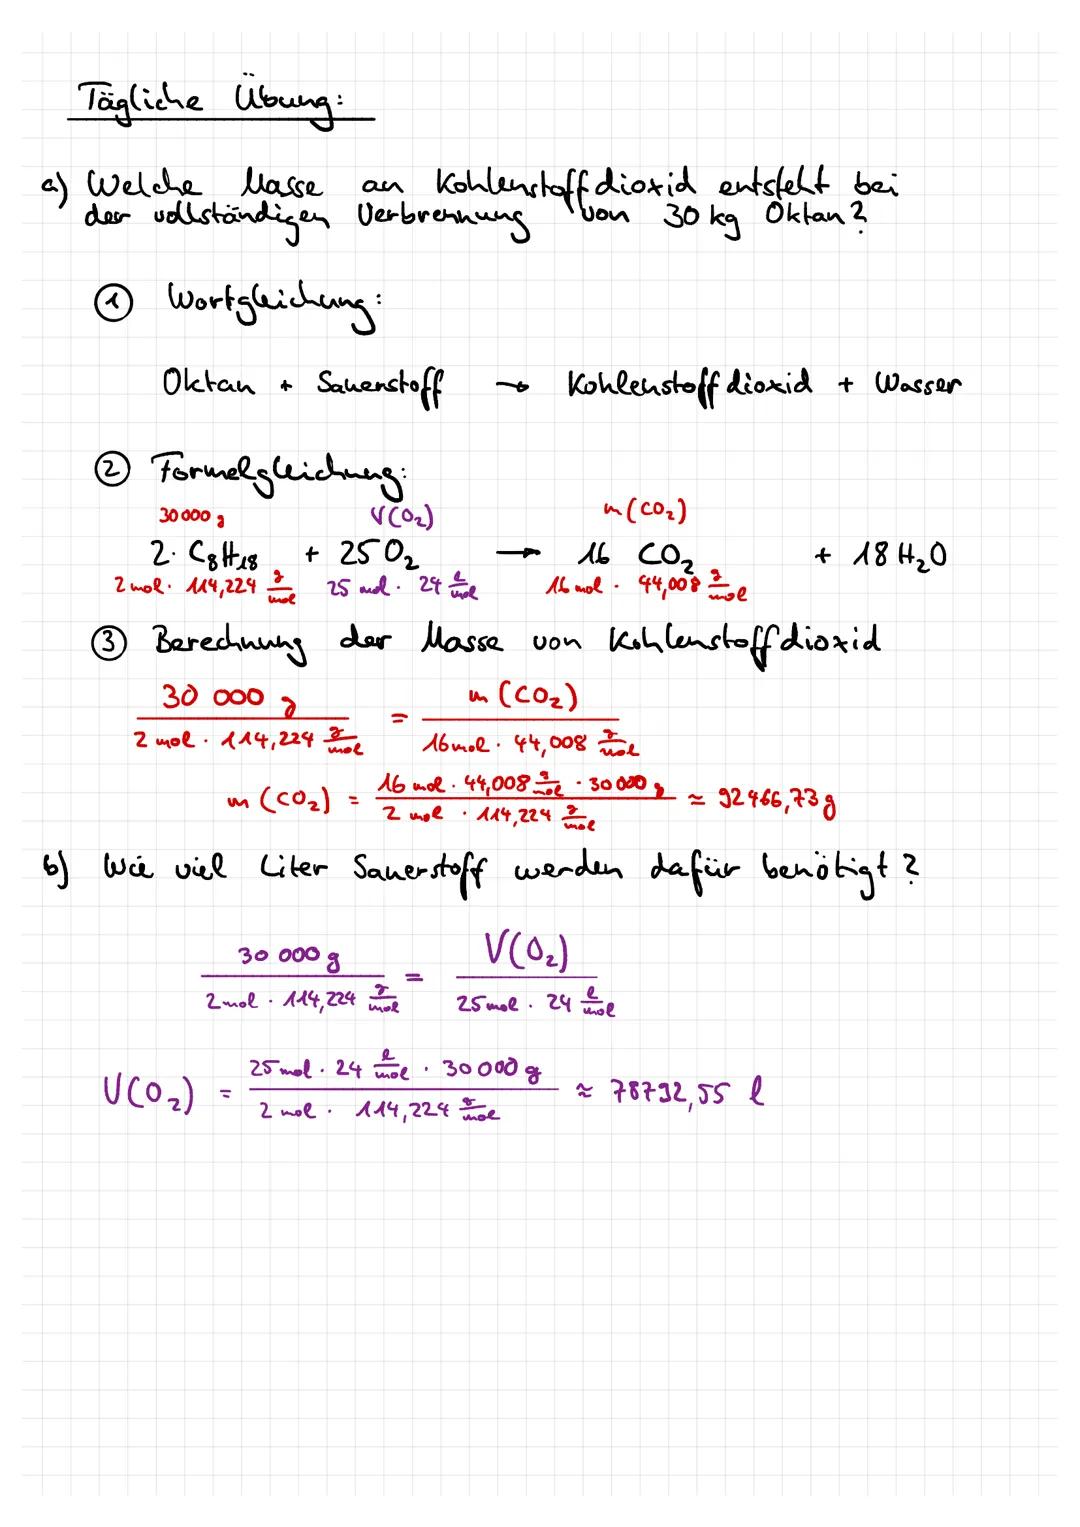 Tägliche Übung:
a) Welche Masse an Kohlenstoffdioxid entsteht bei
der vollständigen Verbrennung von 30 kg Oktan?
① Wortgleichung:
Oktan + Sauerstoff → Kohlenstoffdioxid + Wasser
② Formelgleichung:
30000 g V(O₂) m(CO₂)
2·C₈H₁₈ + 25 O₂ → 16 CO₂ + 18 H₂O
2 mol · 114,224 g/mol 25 mol · 24 l/mol 16 mol · 44,008 g/mol
③ Berechnung der Masse von Kohlenstoffdioxid
30 000 g / 2 mol · 114,224 g/mol = m(CO₂) / 16 mol · 44,008 g/mol
m(CO₂) = 16 mol · 44,008 g/mol · 30000 g / 2 mol · 114,224 g/mol ≈ 92466,73 g
b) Wie viel Liter Sauerstoff werden dafür benötigt?
30 000 g / 2 mol · 114,224 g/mol = V(O₂) / 25 mol · 24 l/mol
V(O₂) = 25 mol · 24 l/mol · 30 000 g / 2 mol · 114,224 g/mol ≈ 78792,55 l